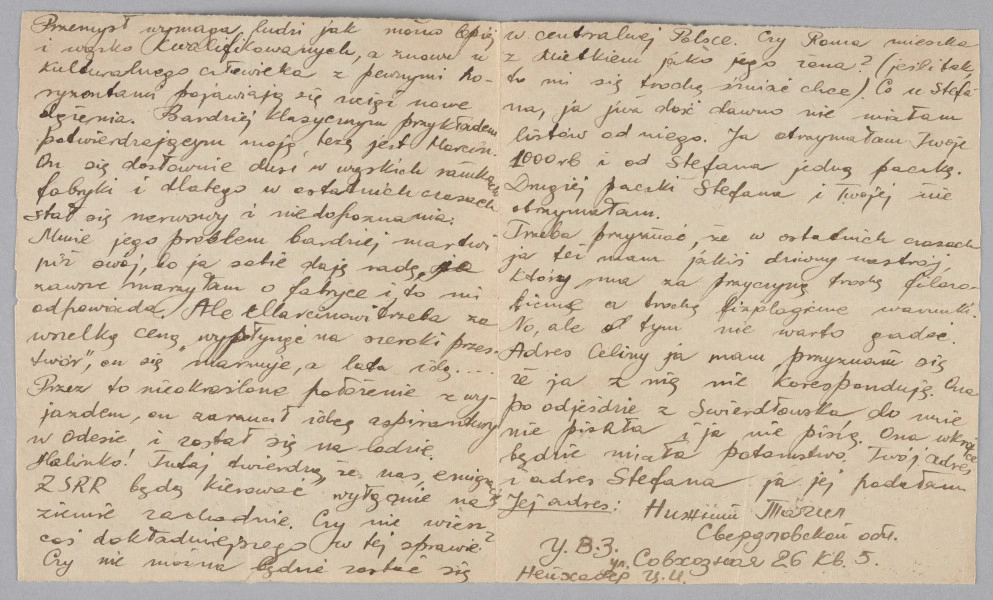 Przemysł wymaga ludzi jak można lepiej
i wąsko kwalifikowanych, a znowu u
kulturalnego człowieka z pewnymi ho-
ryzontami pojawiają się wciąż nowe
dążenia. Bardziej klasycznym przykładem
potwierdzającym moją tezę jest Marcin.
On się dosłownie dusi w wąskich ramkach
fabryki i dlatego w ostatnich czasach
stał się nerwowy i niedopoznania.
Mnie jego problem bardziej martwi
niż swój, bo ja sobie daję radę, ja
zawsze marzyłam o fabryce i to mi
odpowiada. Ale Marcinowi trzeba za
wszelką cenę „wypłynąć na szeroki przes-
twór", on się marnuje, a lata idą....
Przez to nieokreślone położenie z wy-
jazdem, on zarzucił ideę aspirantury
w Odesie i został się na lodzie.
Halinko! Tutaj twierdzą, że nas emigr. z
ZSRR będą kierować wyłącznie na
ziemie zachodnie. Czy nie wiesz
coś dokładniejszego w tej sprawie?
Czy nie można będzie zostać się
w centralnej Polsce. Czy Roma mieszka
z Mietkiem jako jego żona? (jeśli tak,
to mi się trochę śmiać chce). Co u Stefa-
na, ja już dość dawno nie miałam
listów od niego. Ja otrzymałam Twoje
1000 rb i od Stefana jedną paczkę.
Drugiej paczki Stefana i Twojej nie
otrzymałam.
Trzeba przyznać, że w ostatnich czasach
ja też mam jakiś dziwny nastrój,
który ma za przyczynę trochę filozo-
ficzne a trochę fizjologiczne warunki.
No, ale o tym nie warto gadać.
Adres Celiny ja mam, przyznam się
że ja z nią nie koresponduję. Ona
po odjeździe z Swierdłowska do mnie
nie pisała i ja nie piszę. Ona wkrótce
będzie miała potomstwo. Twój adres
i adres Stefana ja jej podałam
Jej adres: Нижний Тагил
Свердловской обл.
У.В.З.
ул. Совхозная 26 кв. 5.
Нейхабер Ц.И.